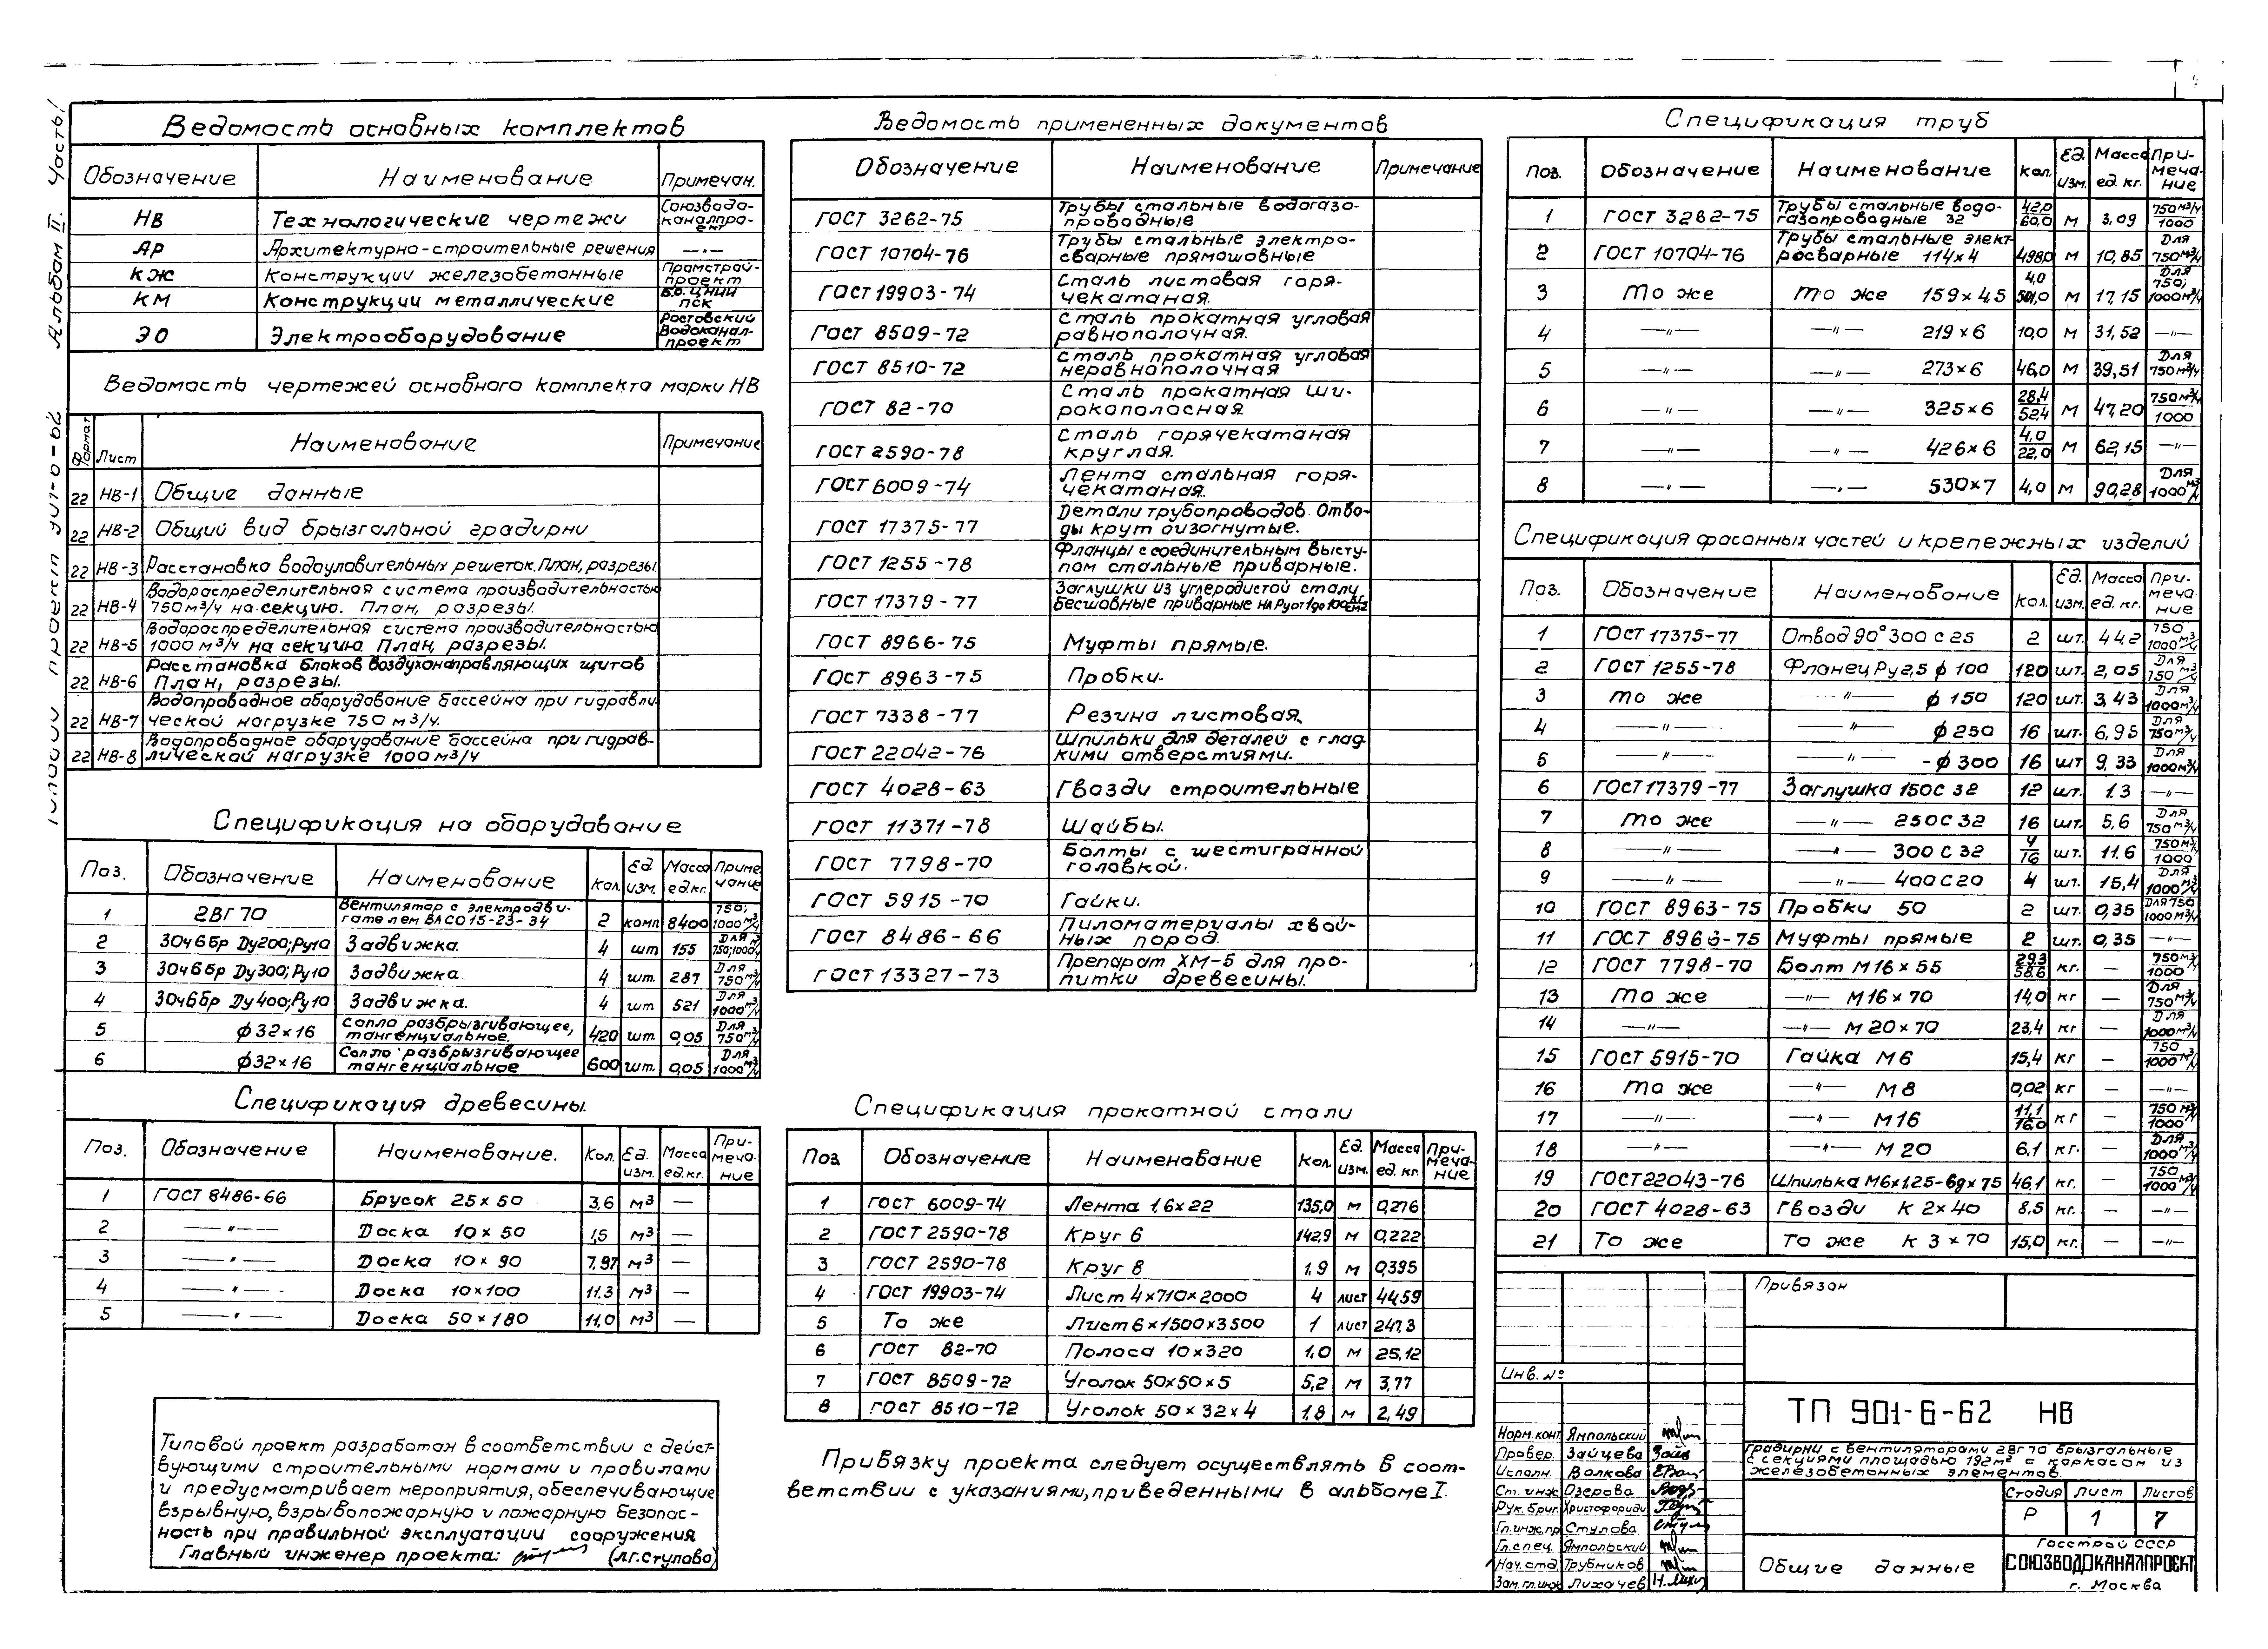 Альбом II. Часть I
Типовой проект 901-6-62
Ведомость основных комплектов
Обозначение Наименование Примечан.
НВ Технологические чертежи Союзвода-
каналпро-
ект
АР Архитектурно-строительные решения —„—
КЖ Конструкции железобетонные Промстрой-
проект
КМ Конструкции металлические Б.О. ЦНИИ
ПСК
ЭО Электрооборудование Ростовский
Водоканал-
проект
Ведомость чертежей основного комплекта марки НВ
Формат Лист Наименование Примечание
22 НВ-1 Общие данные
22 НВ-2 Общий вид брызгальной градирни
22 НВ-3 Расстановка водоуловительных решеток. План, разрезы.
Водораспределительная система производительностью
22 НВ-4 750 м³/ч на секцию. План, разрезы.
Водораспределительная система производительностью
22 НВ-5 1000 м³/ч на секцию План, разрезы.
Расстановка блоков воздухонаправляющих щитов
22 НВ-6 План, разрезы.
Водопроводное оборудование бассейна при гидравли-
22 НВ-7 ческой нагрузке 750 м³/ч.
Водопроводное оборудование бассейна при гидрав-
22 НВ-8 лической нагрузке 1000 м³/ч
Спецификация на оборудование
Поз. Обозначение Наименование Кол. Ед. изм. Масса ед.кг. Приме чание
1 2ВГ 70 Вентилятор с электродви-
гателем ВАСО 15-23-34 2 комп 8400 750; 1000 м³/ч
2 30ч6бр Ду200; Ру10 Задвижка. 4 шт 155 Для 750;1000 м³/ч
3 30ч6бр Ду300; Ру10 Задвижка 4 шт. 287 Для 750 м³/ч
4 30ч6бр Ду400; Ру10 Задвижка. 4 шт 521 Для 1000 м³/ч
5 ф 32×16 Сопло разбрызгивающее,
тангенциальное. 420 шт. 0,05 Для 750 м³/ч
6 ф32×16 Сопло разбрызгивающее
тангенциальное 600 шт. 0,05 Для 1000 м³/ч
Спецификация древесины.
Поз. Обозначение Наименование. Кол. Ед. изм. Масса ед.кг. При-меча-ние
1 ГОСТ 8486-66 Брусок 25×50 3,6 м³ —
2 —„— Доска 10×50 1,5 м³ —
3 —„— Доска 10×90 7,97 м³ —
4 —„— Доска 10×100 11.3 м³ —
5 —„— Доска 50×180 11,0 м³ —
Типовой проект разработан в соответствии с дейст-
вующими строительными нормами и правилами
и предусматривает мероприятия, обеспечивающие
взрывную, взрывопожарную и пожарную безопас-
ность при правильной эксплуатации сооружения
Главный инженер проекта: (Л.Г. Стулова)
Ведомость примененных документов
Обозначение Наименование Примечание
ГОСТ 3262-75 Трубы стальные водогазо-
проводные
ГОСТ 10704-76 Трубы стальные электро-
сварные прямошовные
ГОСТ 19903-74 Сталь листовая горя-
чекатаная.
ГОСТ 8509-72 Сталь прокатная угловая
равнополочная.
ГОСТ 8510-72 Сталь прокатная угловая
неравнополочная
ГОСТ 82-70 Сталь прокатная ши-
рокополосная
ГОСТ 2590-78 Сталь горячекатаная
круглая.
ГОСТ 6009-74 Лента стальная горя-
чекатаная.
ГОСТ 17375-77 Детали трубопроводов. Отво-
ды крутоизогнутые.
ГОСТ 1255-78 Фланцы с соединительным высту-
пом стальные приварные.
ГОСТ 17379-77 Заглушки из углеродистой стали
бесшовные приварные на Ру от 1 до 100 кг/см2
ГОСТ 8966-75 Муфты прямые.
ГОСТ 8963-75 Пробки.
ГОСТ 7338-77 Резина листовая
ГОСТ 22042-76 Шпильки для деталей с глад-
кими отверстиями.
ГОСТ 4028-63 Гвозди строительные
ГОСТ 11371-78 Шайбы.
ГОСТ 7798-70 Болты с шестигранной
головкой.
ГОСТ 5915-70 Гайки.
ГОСТ 8486-66 Пиломатериалы хвой-
ных пород.
ГОСТ 13327-73 Препарат ХМ-5 для про-
питки древесины.
Спецификация прокатной стали
Поз Обозначение Наименование Кол. Ед. изм. Масса ед. кг. При-меча-ние
1 ГОСТ 6009-74 Лента 1,6×22 135,0 м 0,276
2 ГОСТ 2590-78 Круг 6 142,9 м 0,222
3 ГОСТ 2590-78 Круг 8 1.9 м 0,395
4 ГОСТ 19903-74 Лист 4×710×2000 4 лист 44,59
5 То же Лист 6×1500×3500 1 лист 247,3
6 ГОСТ 82-70 Полоса 10×320 1,0 м 25,12
7 ГОСТ 8509-72 Уголок 50×50×5 5,2 м 3,77
8 ГОСТ 8510-72 Уголок 50×32×4 1,8 м 2,49
Привязку проекта следует осуществлять в соот-
ветствии с указаниями, приведенными в альбоме I.
Спецификация труб
Поз. Обозначение Наименование Кол. Ед. изм. Масса ед. кг. При-меча-ние
1 ГОСТ 3262-75 Трубы стальные водо-
газопроводные 32 42,0/60,0 м 3,09 750 м³/ч/1000
2 ГОСТ 10704-76 Трубы стальные элект-
росварные 114×4 498,0 м 10,85 Для 750 м³/ч
3 То же То же 159×4,5 4,0 501,0 м 17,15 Для 750; 1000 м³/ч
4 —„— —„— 219×6 10,0 м 31,52 —„—
5 —„— —„— 273×6 46,0 м 39,51 Для 750 м³/ч
6 —„— —„— 325×6 28,4/52,4 м 47,20 750 м³/ч/1000
7 —„— —„— 426×6 4,0/22,0 м 62,15 —„—
8 —„— —„— 530×7 4,0 м 90,28 Для 1000 м³/ч
Спецификация фасонных частей и крепежных изделий
Поз. Обозначение Наименование Кол. Ед. изм. Масса ед. кг. При-меча-ние
1 ГОСТ 17375-77 Отвод 90° 300 с 25 2 шт. 44.2 750/1000 м³/ч
2 ГОСТ 1255-78 Фланец Ру2,5 ф 100 120 шт. 2,05 Для 750 м³/ч
3 То же —„— ф 150 120 шт. 3,43 Для 1000 м³/ч
4 —„— —„— ф 250 16 шт. 6,95 Для 750 м³/ч
5 —„— —„— -ф 300 16 шт 9,33 Для 1000 м³/ч
6 ГОСТ 17379-77 Заглушка 150с 32 12 шт. 1.3 —„—
7 То же —„— 250с 32 16 шт. 5,6 Для 750 м³/ч
8 —„— —„— 300 с 32 4/16 шт. 11.6 750 м³/ч/1000
9 —„— —„— 400с20 4 шт. 15,4 Для 1000 м³/ч
10 ГОСТ 8963-75 Пробки 50 2 шт. 0,35 Для 750 1000 м³/ч
11 ГОСТ 8966-75 Муфты прямые 2 шт. 0,35 —„—
12 ГОСТ 7798-70 Болт М16×55 29,3/58,6 кг. — 750 м³/ч/1000
13 То же —„— М16×70 14,0 кг — Для 750 м³/ч
14 —„— —„— М20×70 23,4 кг — Для 1000 м³/ч
15 ГОСТ 5915-70 Гайка М6 15,4 кг — 750/1000 м³/ч
16 То же —„— М8 0,02 кг — —„—
17 —„— —„— М16 11,1/16,0 кг — 750 м³/ч/1000
18 —„— —„— М20 6,1 кг. — Для 1000 м³/ч
19 ГОСТ 22043-76 Шпилька М6×1.25-6g×75 46,1 кг. — 750/1000 м³/ч
20 ГОСТ 4028-63 Гвозди К 2×40 8.5 кг. — —„—
21 То же То же К 3×70 15,0 кг. — —„—
Привязан
Инв. №
ТП 901-6-62 НВ
Норм.конт Ямпольский
Провер. Зайцева
Исполн. Волкова
Ст. инж Озерова
Рук. бриг. Христофориди
Гл.инж.пр Стулова
Гл.спец. Ямпольский
Нач. отд. Трубников
Зам.гл.инж Лихачев
Градирни с вентиляторами 2ВГ 70 брызгальные
с секциями площадью 192м² с каркасом из
железобетонных элементов.
Стадия Лист Листов
Р 1 7
Общие данные
Госстрой СССР
СОЮЗВОДОКАНАЛПРОЕКТ
г. Москва